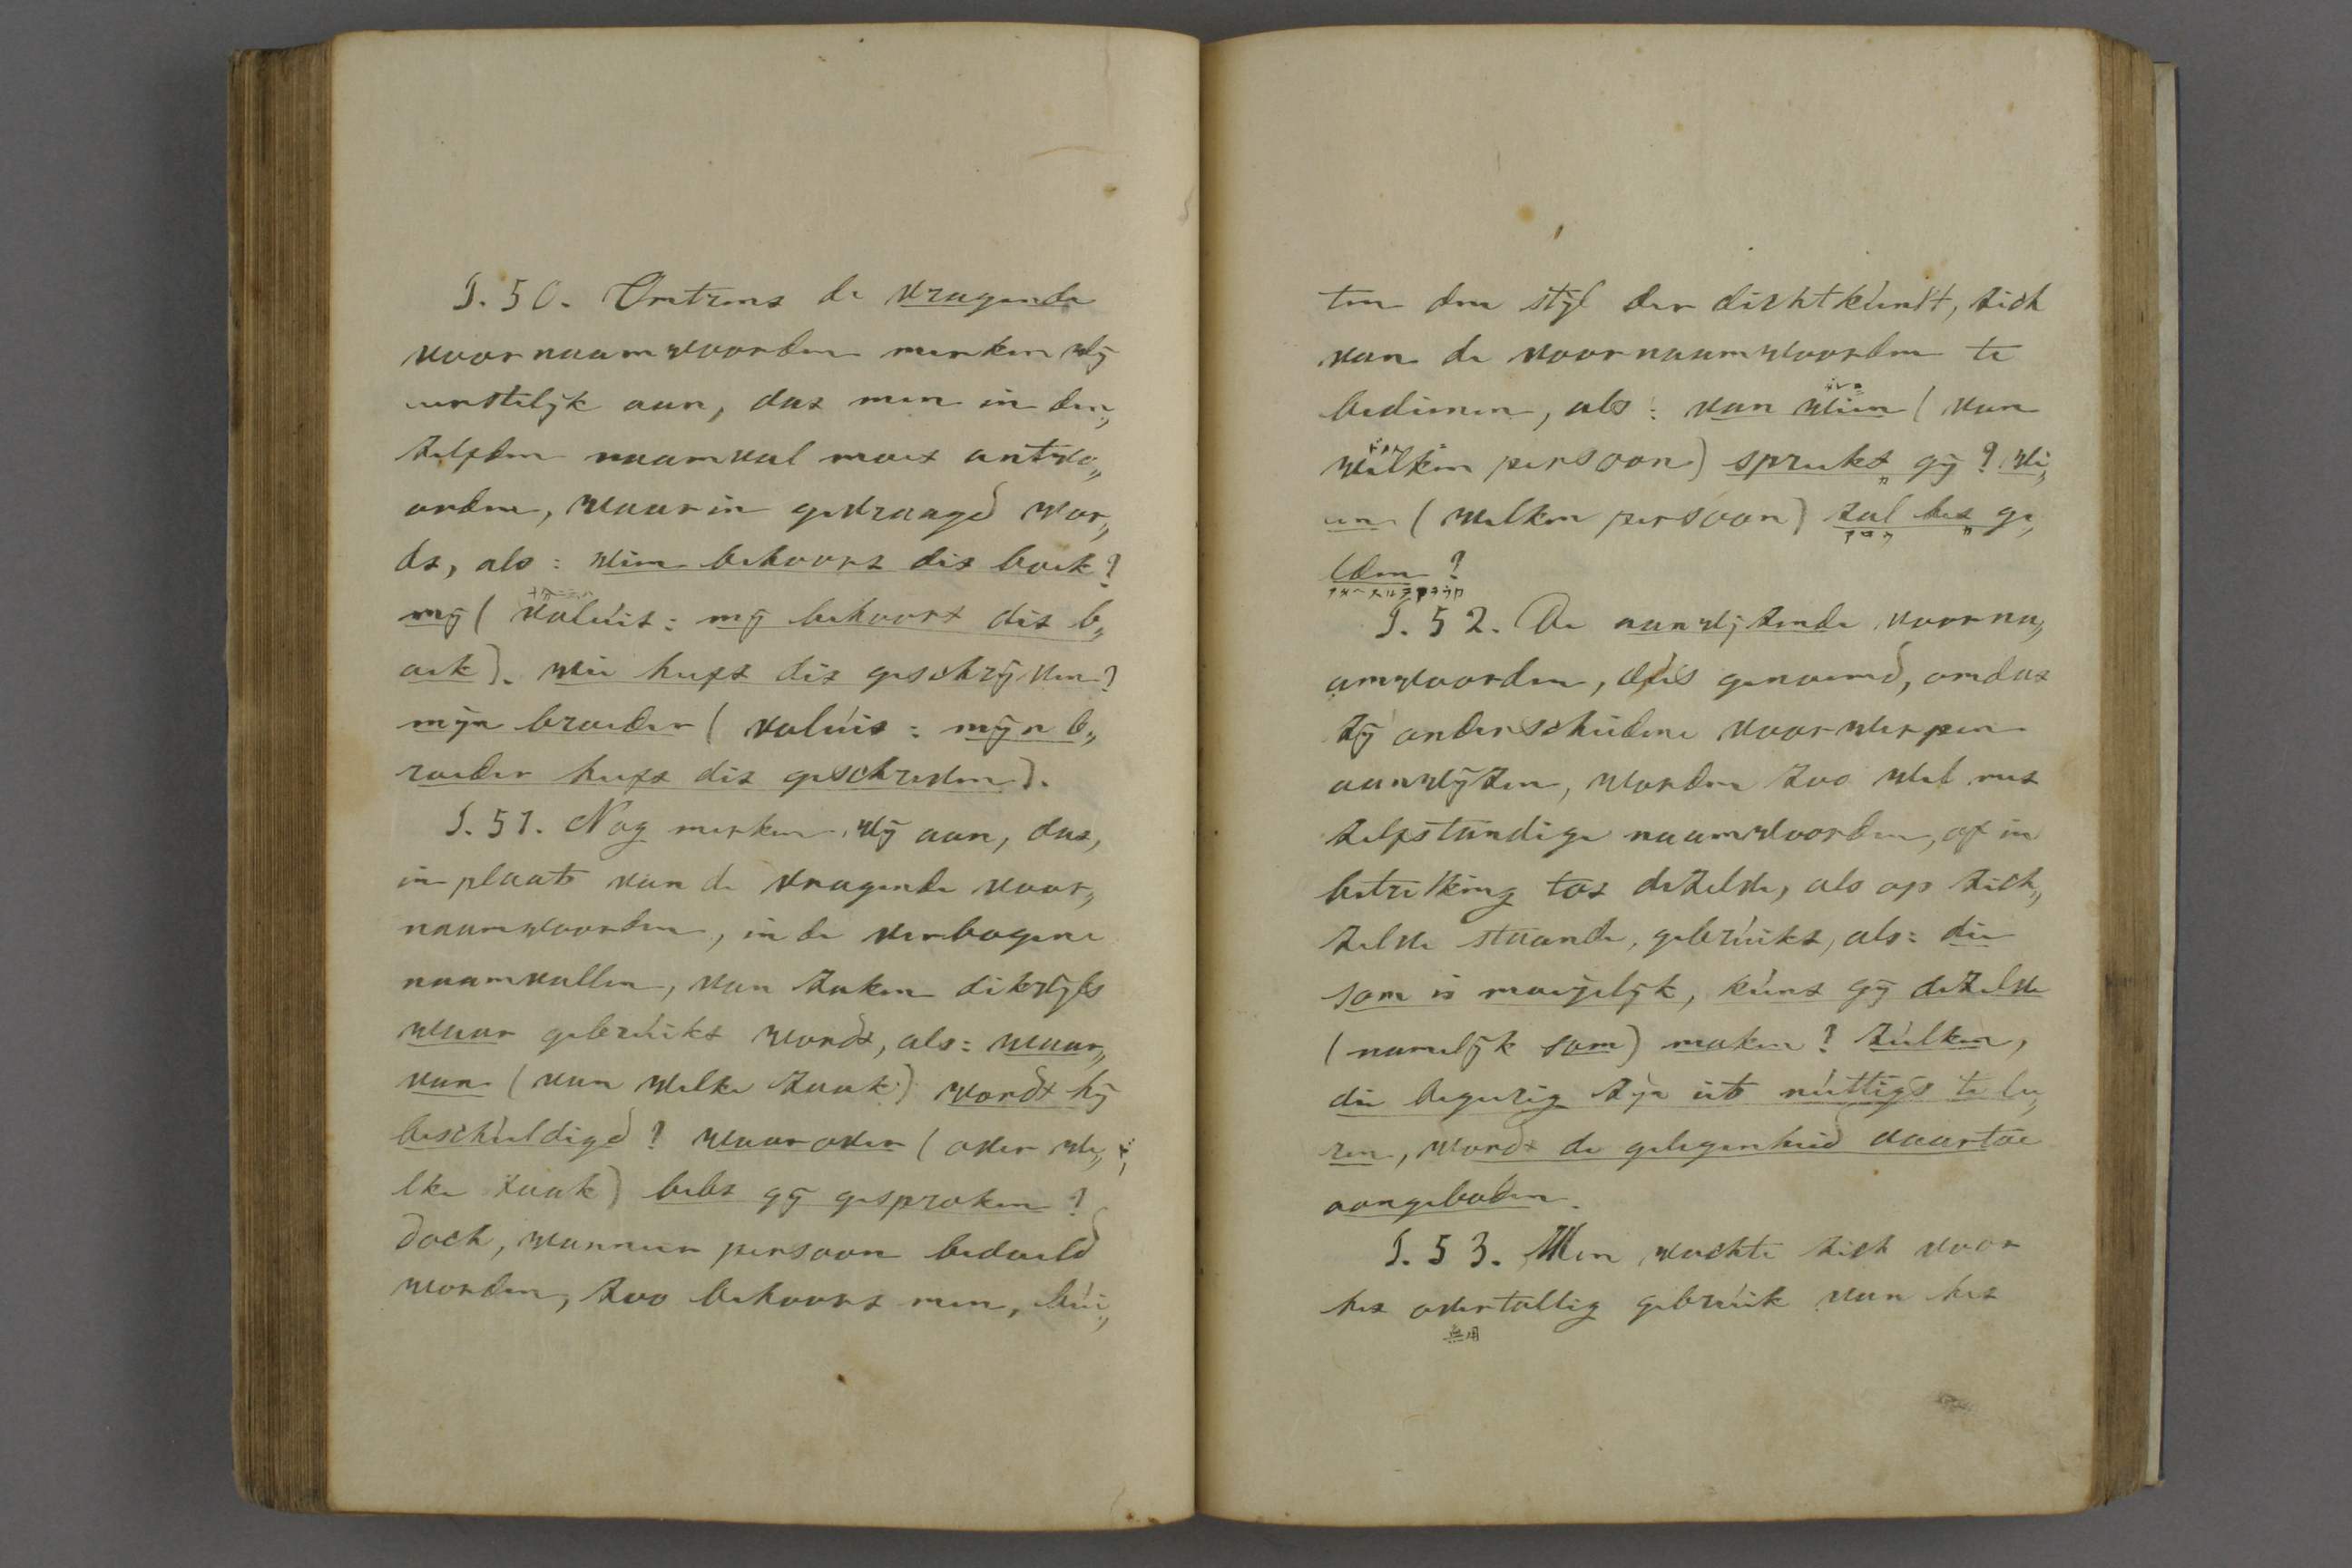 §. 50. Omtrent de vragende
voornaamwoorden merken wij
eerstelijk aan, dat men in den„
zelfden naamval moet antwo„
orden, waarin gevraagd wor„
dt, als: wien behoort dit boek?
mij (voluit: mij behoort dit b„
oek). wie heeft dit geschrijven?
mijn broeder (voluit: mijn b„
roeder heeft dit geschreven).
§. 51. Nog merken wij aan, dat,
in plaats van de vragende voor„
naamwoorden, in de verbogene
naamvallen, van zaken dikwijls
waar gebruikt wordt, als: waar„
van (van welke zaak) wordt hij
beschuldigd? waarover (over we„
lke zaak) hebt gij gesproken?
doch, wanneer persoon bedoeld
worden, zoo behoort men, bui„
ten den stijl der dichtkunst, zich
van de voornaamwoorden te
bedienen, als: van wien (van
welken persoon) spreekt gij? wi„
en (welken persoon) zal het ge„
lden?
§. 52. De aanwijzende voorna„
amwoorden, dus genoemd, omdat
zij onderscheidene voorwerpen
aanwijzen, worden zoo wel met
zelfstandige naamwoorden, of in
betrekking tot dezelve, als op zich„
zelve staande, gebruikt, als: die
som is moeijelijk, kunt gij dezelve
(namelijk som) maken? zulken,
die begeerig zijn iets nuttigs te le„
ren, wordt de gelegenheid daartoe
aangeboden.
§. 53. Men wachte zich voor
het overtallig gebruik van het
無用